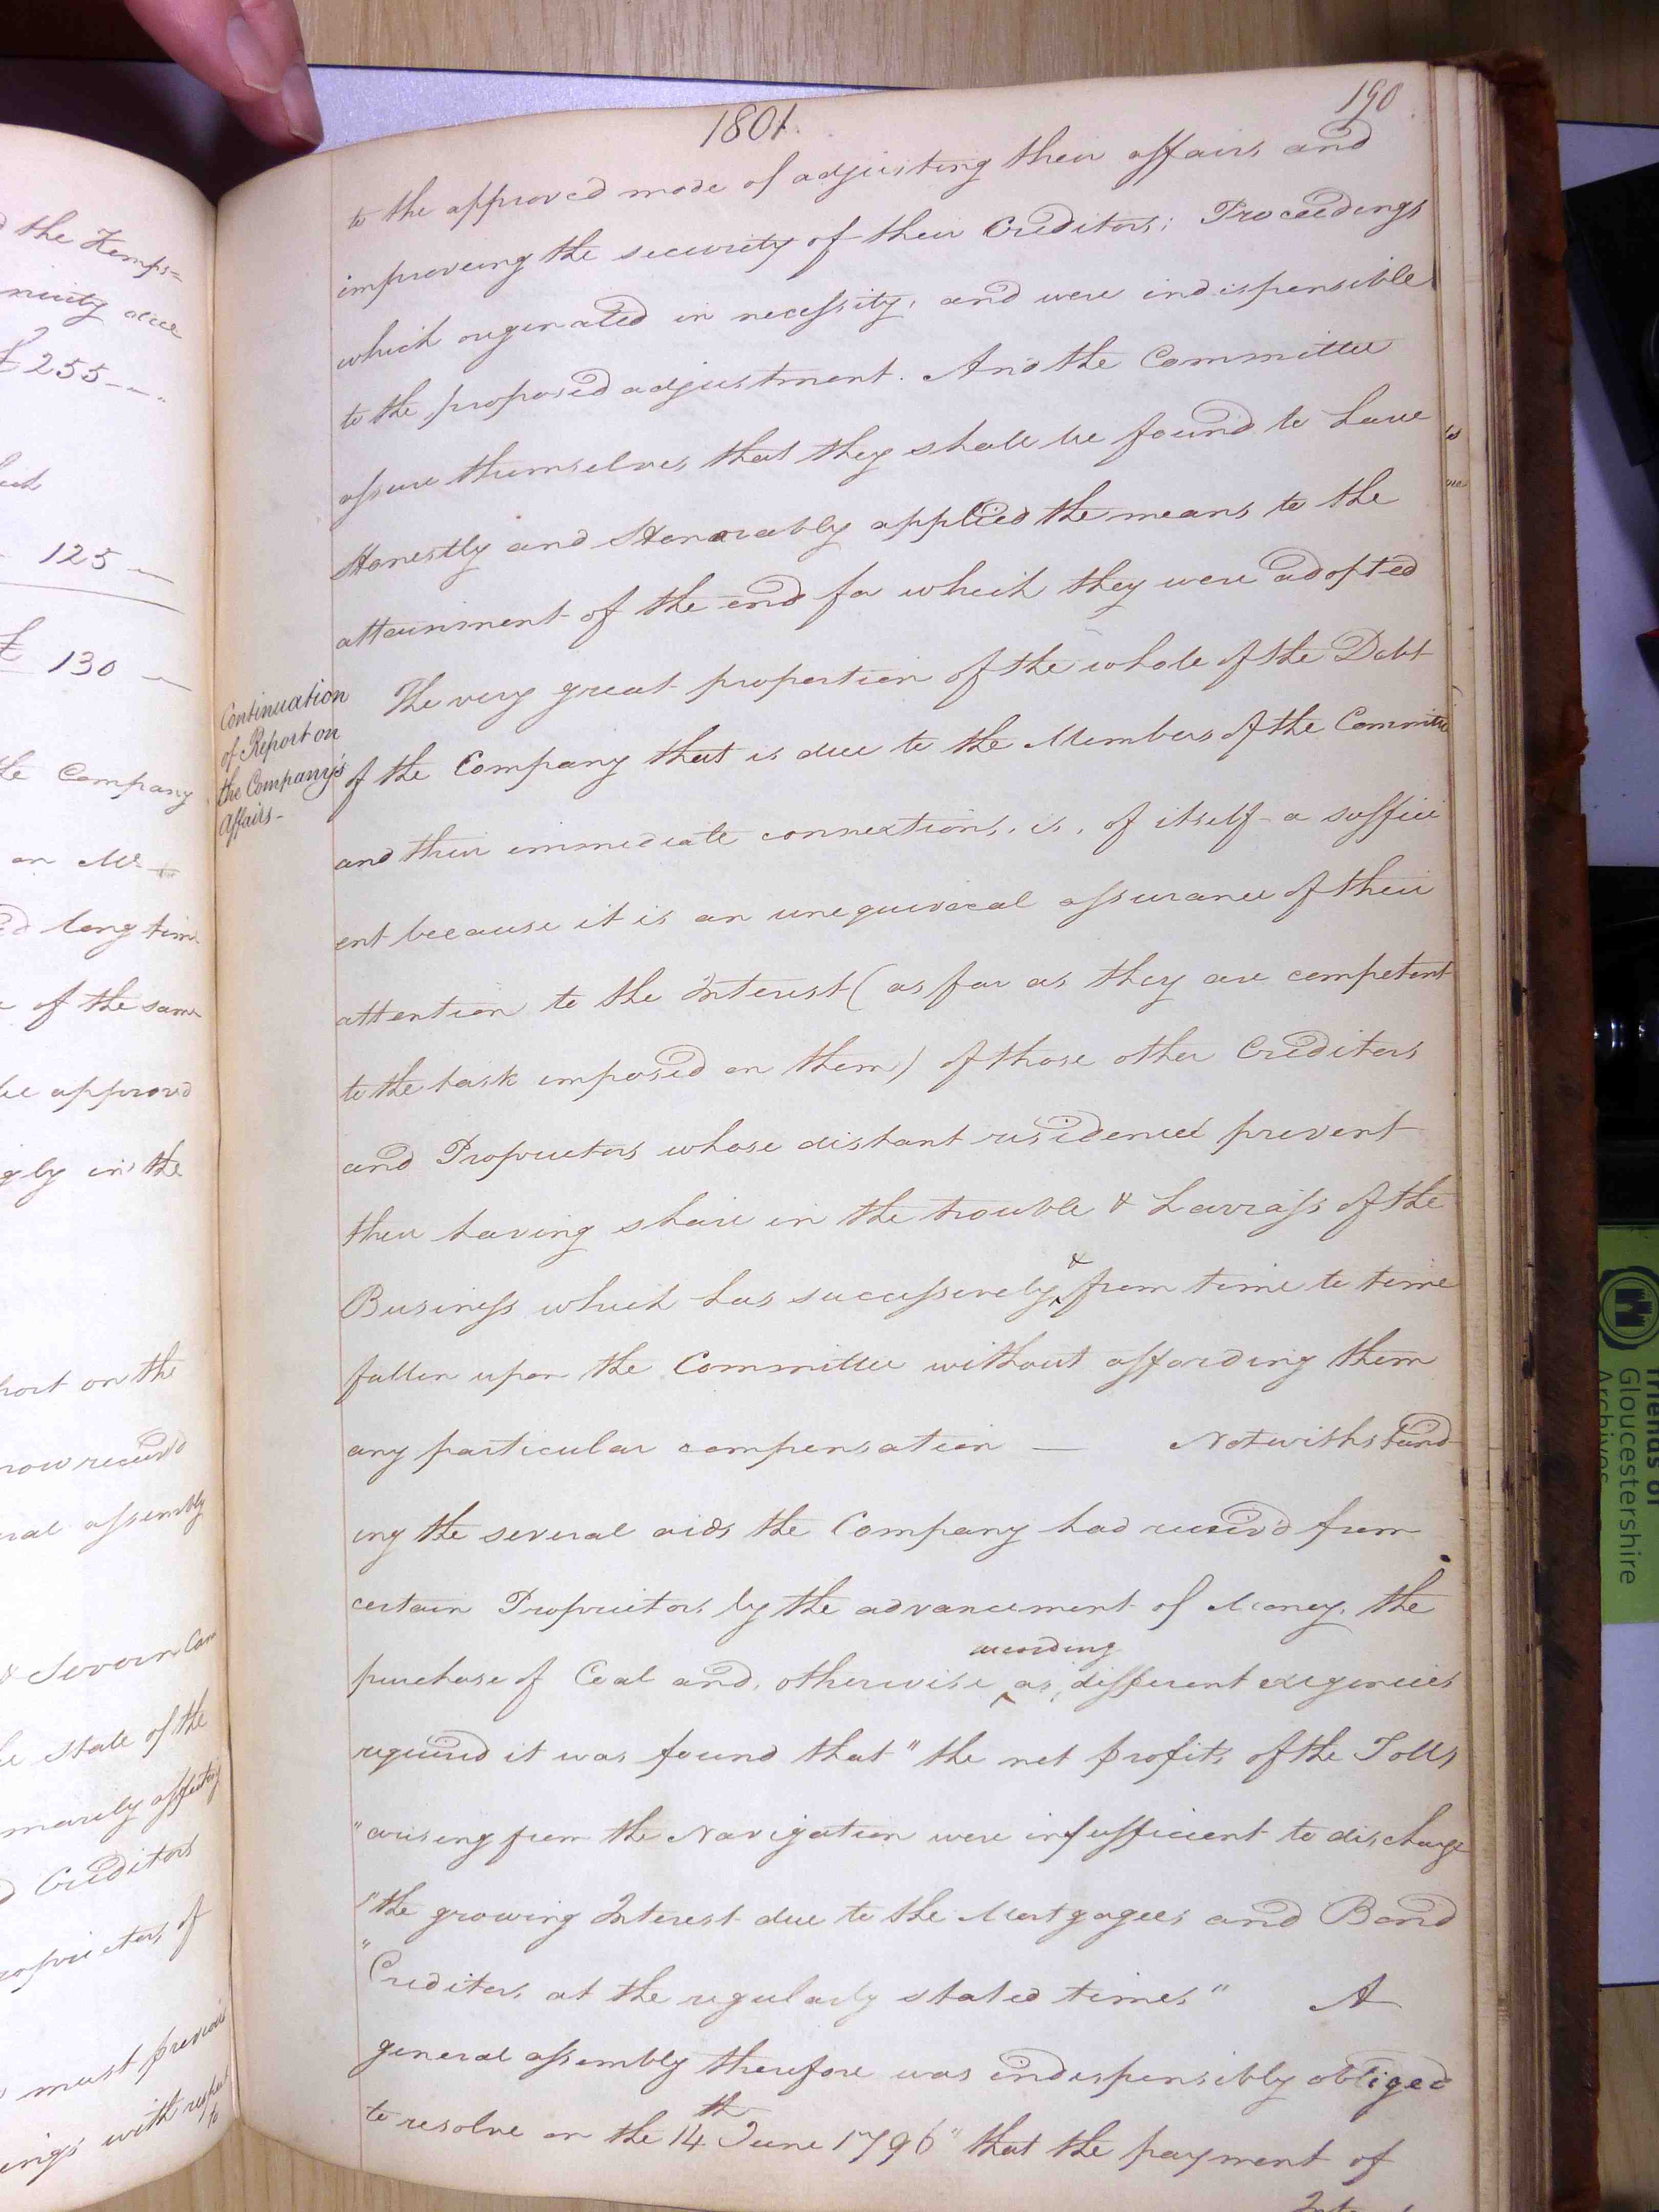 1801.
190
to the approved mode of adjusting their affairs and
improveing the security of their Creditors; Proceedings
which originated in necessity, and were indispensible
to the proposed adjustment. And the Committee
assure themselves that they shall be found to have
Honestly and Honorably applied the means to the
attainment of the end for which they were adopted
Continuation
of Report on
the Company's
Affairs -
The very great proportion of the whole of the Debt
of the Company that is due to the Members of the Committee
and their immediate connextions, is, of itself a suffici
ent because it is an unequivocal assurance of their
attention to the Interest (as far as they are competent
to the task imposed on them) of those other Creditors
and Proprietors whose distant residences prevent
their having share in the trouble & harrass of the
Business which has successively & from time to time
fallen upon the Committee without affording them
any particular compensation — Notwithstand
ing the several aids the Company had receiv'd from
certain Proprietors by the advancement of Money, the
purchase of Coal and, otherwise according as, different exigencies
required it was found that "the net profits of the Tolls
"arising from the Navigation were insufficient to discharge
"the growing Interest due to the Mortgagees and Bond
"Creditors at the regularly stated times" A
general assembly therefore was indispensibly obliged
to resolve on the 14th June 1796 "that the payment of
d the Kemps=
£ 255 - - "
125 —
£ 130 —
the Company
on Mr
ed long time
of the same
be approv'd
gly in the
port on the
now receiv'd
ral assembly
& Severn Can
he state of the
marily affecting
d Creditors
roprietors of
must previous
ings with respect
to
Friends of
Gloucestershire
Archives